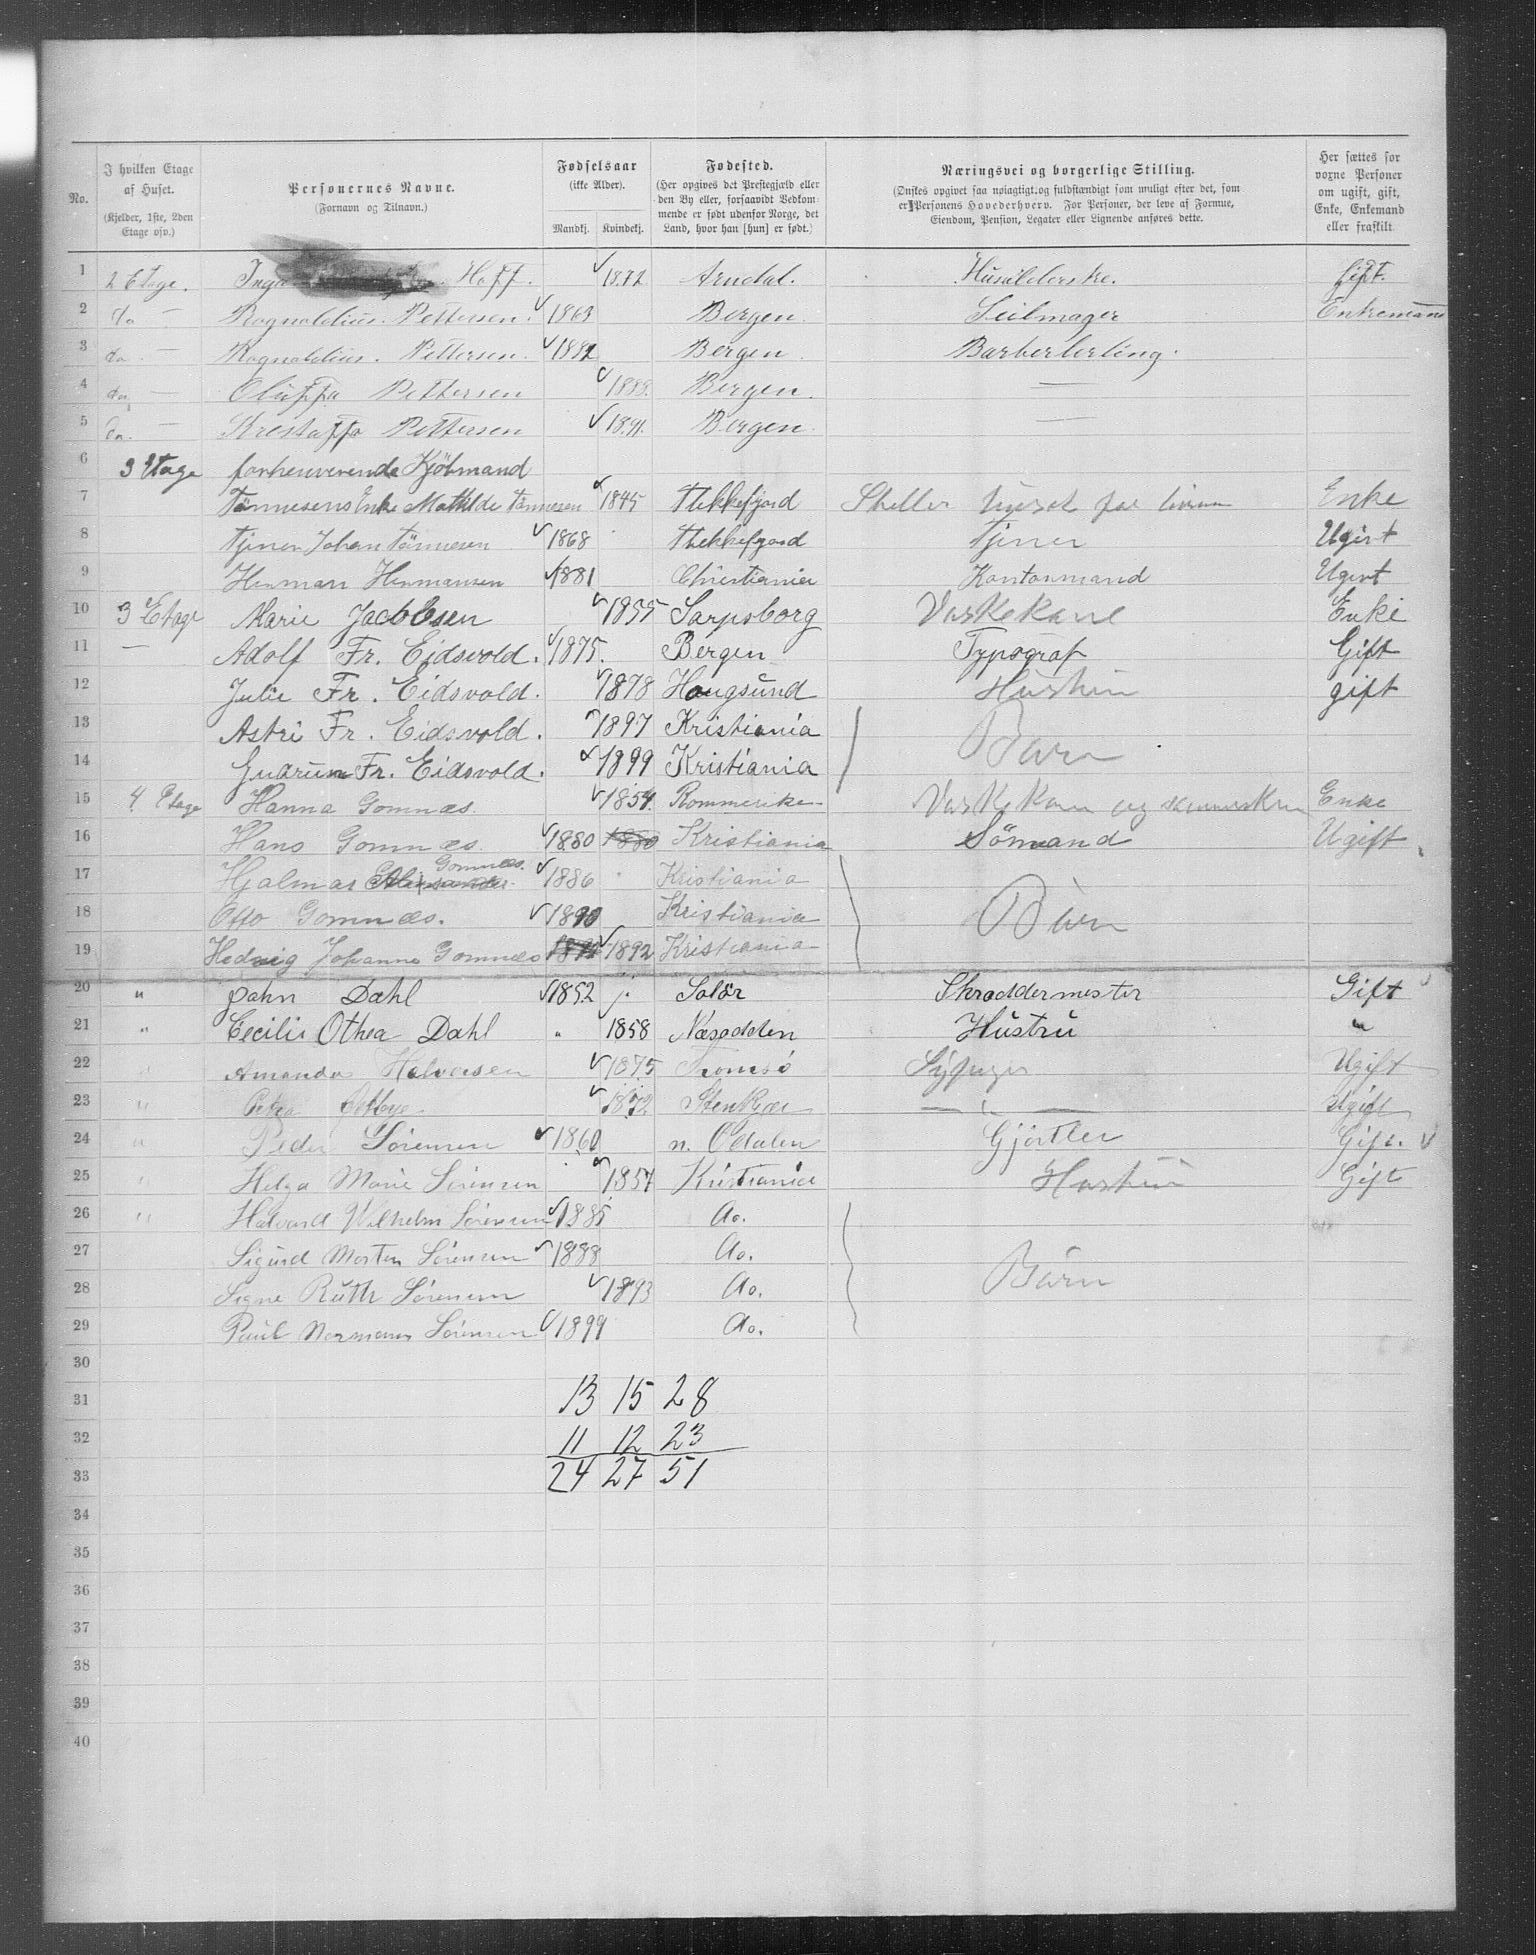 No.
I hvilken Etage af Huset.
(Kjelder, 1ste, 2den Etage osv.)
Personernes Navne.
(Fornavn og Tilnavn.)
Fødselsaar
(ikke Alder).
Mandkj. Kvindekj.
Fødested.
(Her opgives det Prestegjæld eller
den By eller, forsaavidt Vedkom-
mende er født udenfor Norge, det
Land, hvor han [hun] er født.)
Næringsvei og borgerlige Stilling.
(Ønskes opgivet saa nøiagtigt og fuldstændigt som muligt efter det, som
er Personens Hovederhverv. For Personer, der leve af Formue,
Eiendom, Pension, Legater eller Lignende anføres dette.
Her sættes for
voxne Personer
om ugift, gift,
Enke, Enkemand
eller fraskilt.
1 2 Etage. Inga Hoff. 1872 Arndal. Husilderske. gift.
2 do — Rognaldius. Pettersen. 1863 Bergen. Seilmager Enkemand
3 do. — Rognaldius. Pettersen. 1882 Bergen. Barberlerling.
4 do. — Oluffa Pettersen 1883. Bergen. —
5 do. — Krestaffa Pettersen 1891. Bergen. —
6 3 Etage forhenverende Kjöbmand
7 Tönnesens Enke Mathilde Tönnesen 1845 Flekkefjord Steller huset for Enke
8 Tjener Johan Tönnesen 1868 Flekkefjord Tjener Ugivt
9 Herman Hermansen 1881 Christiania Kontormand Ugivt
10 3 Etage Marie Jacobsen 1855 Sarpsborg Vaskekone Enke
11 — Adolf Fr. Eidsvold. 1875. Bergen Typograf Gift
12 Julie Fr. Eidsvold. 1878 Hougsund Hustru gift
13 Astri Fr. Eidsvold. 1897 Kristiania
14 Gudrun Fr. Eidsvold. 1899 Kristiania Barn
15 4 Etage Hanna Gomnæs. 1854. Rommerike Vaskekone og Enke
16 Hans Gomnæs. 1880 1880 Kristiania Sömand Ugift
17 Hjalmar Alexander Gomnæs. 1886 Kristiania
18 Otto Gomnæs. 1890 Kristiania Börn
19 Hedvig Johanne Gomnæs 1892 Kristiania
20 " John Dahl 1852 Solör Skræddermester Gift
21 " Cecilie Othea Dahl " 1858 Næsodden Hustru "
22 " Amanda Halvorsen 1875 Tromsö Sypige Ugift
23 " Petra 1872 Stenkjær — " — Ugift
24 " Peder Sørensen 1860 n. Odalen Gjörtler Gift.
25 " Helga Marie Sörensen 1857 Kristiania Hustru Gift
26 " Halvard Wilhelm Sörensen 1885 do.
27 Sigurd Morten Sörensen 1888 do.
28 Signe Ruth Sörensen 1893 do. Börn
29 Paul Normann Sörensen 1899 do.
30
31 13 15 28
32 11 12 23
33 24 27 51
34
35
36
37
38
39
40